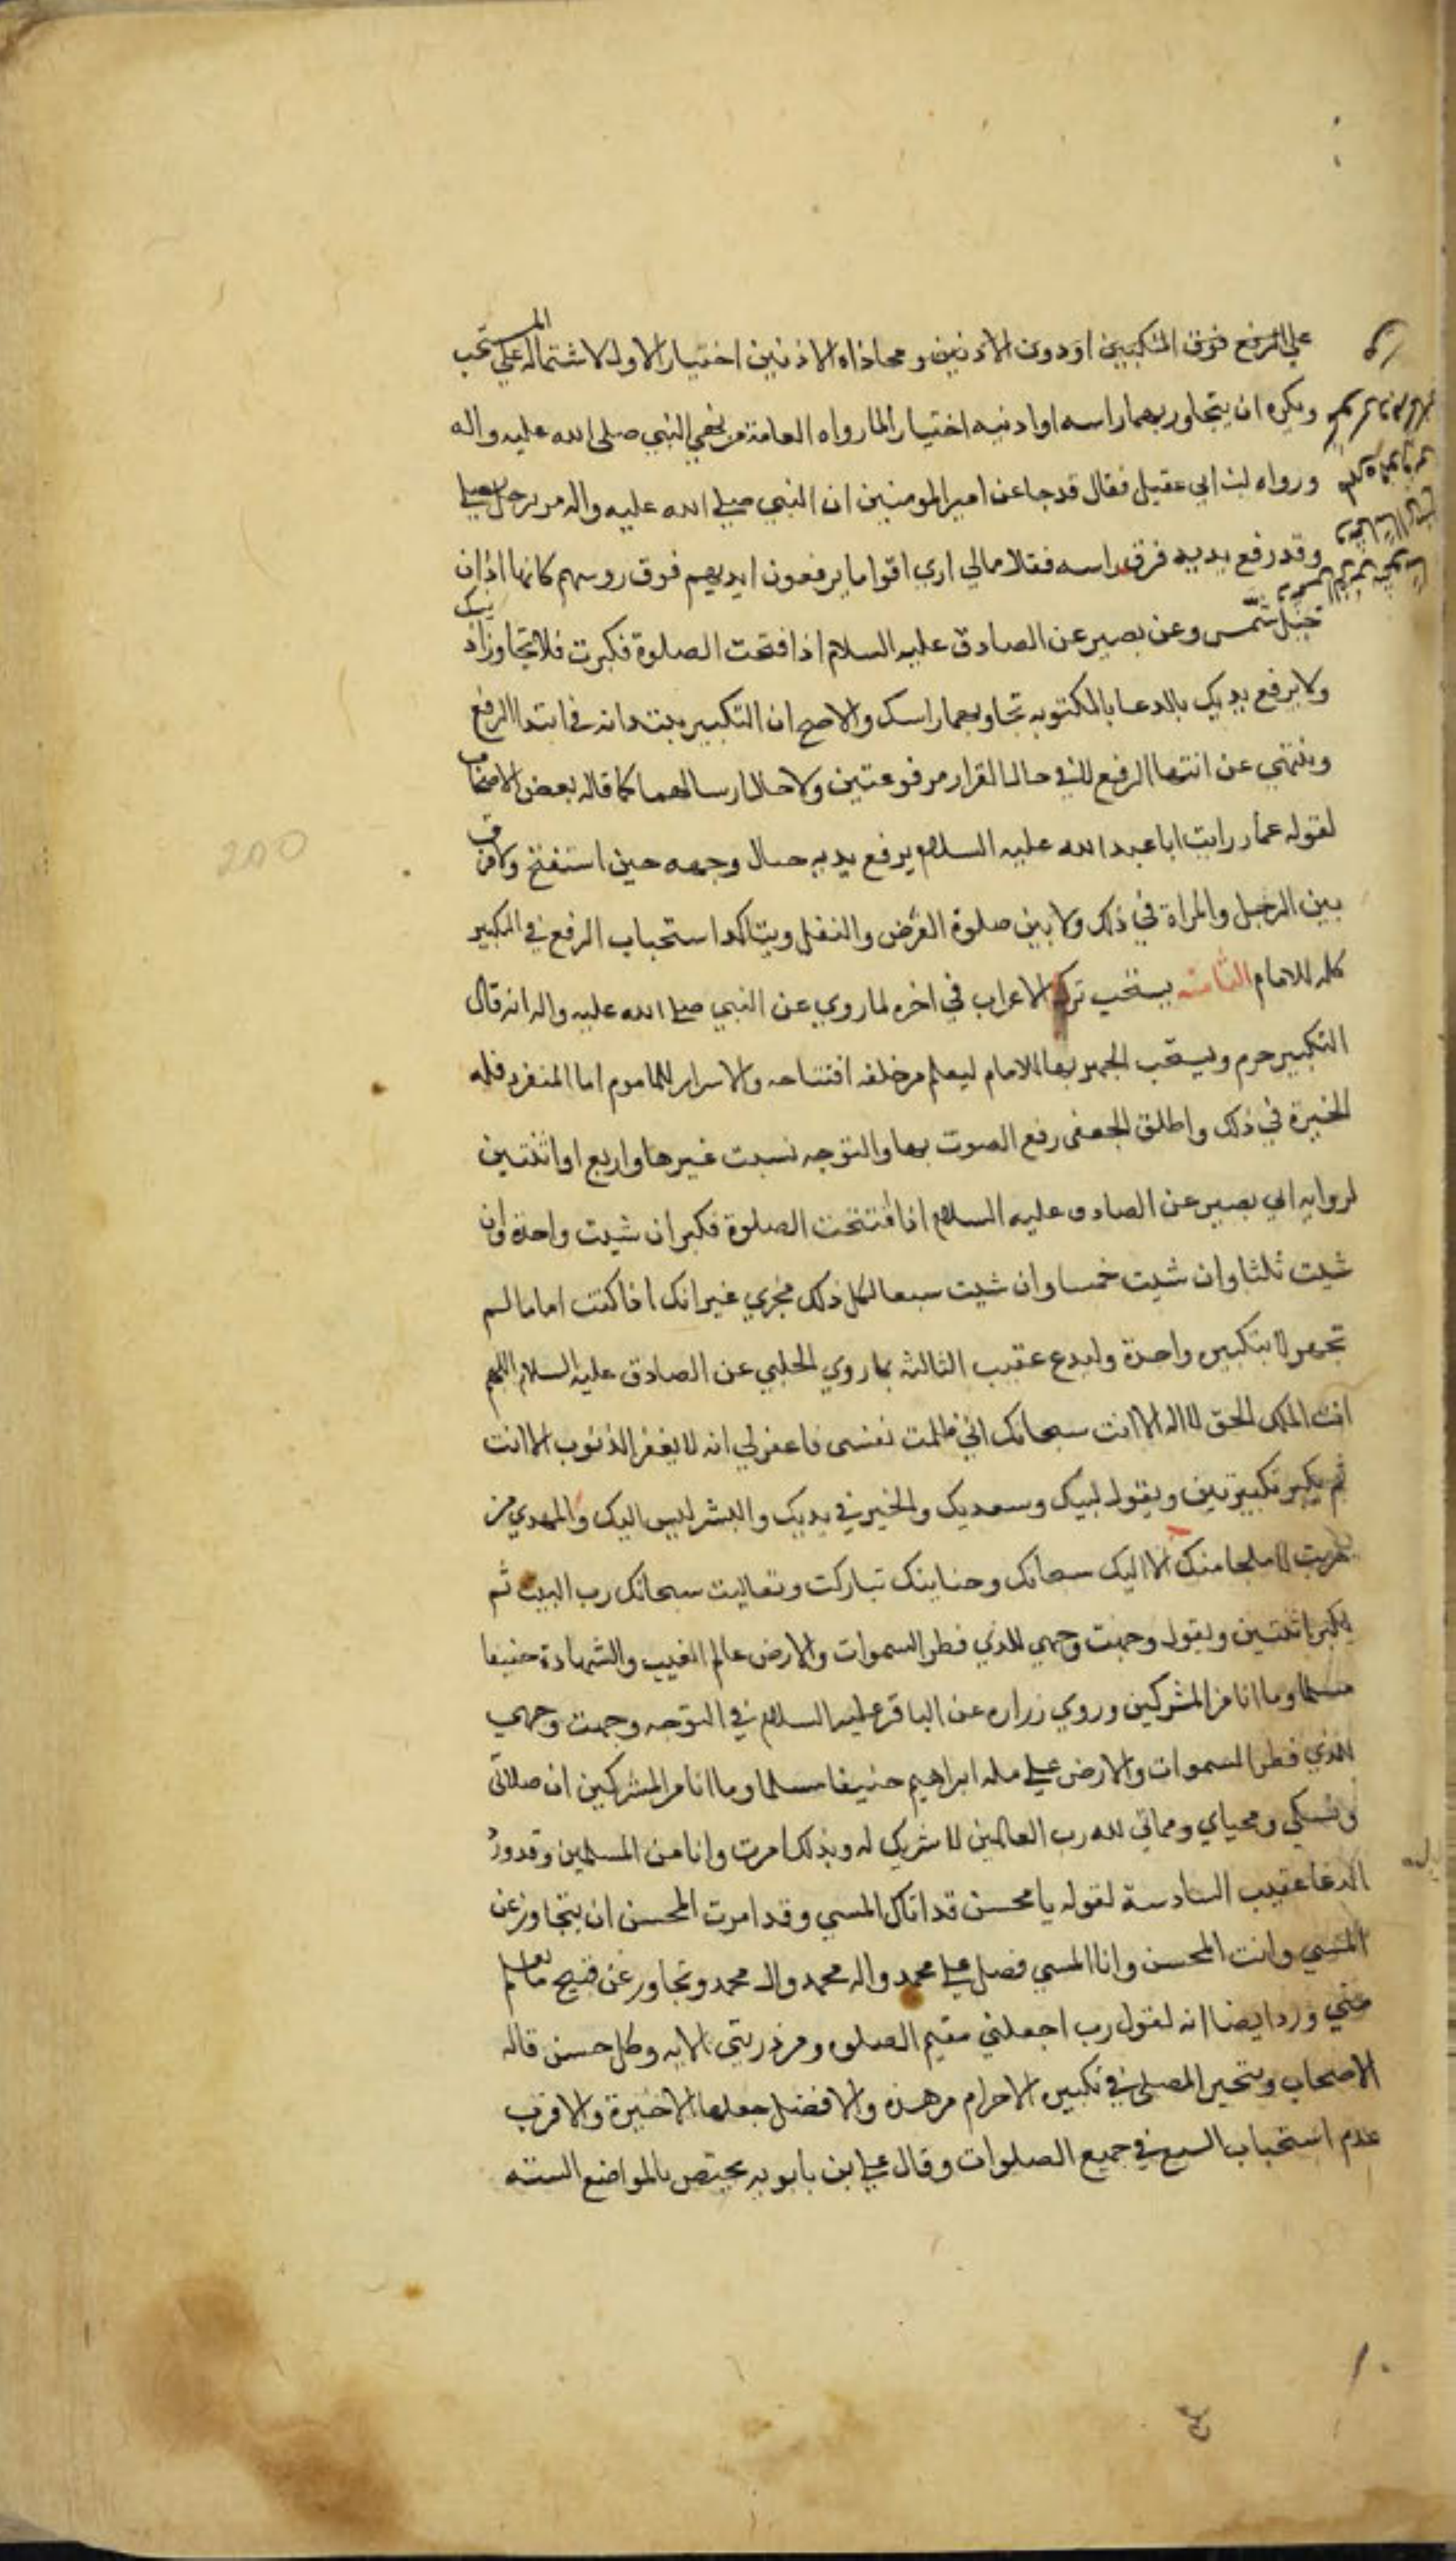 على الرفع فوق المنكبين او دون الاذنين ومحاذاه الاذنين اختيار الاول لاشتماله على المستحب
ويكره ان يتجاوز بهما راسه او اذنيه اختيارا لما رواه العامة من نهي النبي صلى الله عليه واله
ورواه ابن ابي عقيل فقال قد جا عن امير المومنين ان النبي صلى الله عليه واله مر برجل يصلي
وقد رفع يديه فوق راسه فقال مالي اري اقواما يرفعون ايديهم فوق روسهم كانها اذان
خيل شمس وعن بصير عن الصادق عليه السلام اذا افتحت الصلوة فكبرت فلا تجاوز اذنيك
ولا يرفع يديك بالدعا بالمكتوبه تجاوبهما راسك والاصح ان التكبير يبتدانه في ابتدا الرفع
وينتهي عن انتها الرفع لا في حال القرار مرفوعتين ولا حال ارسالهما كما قاله بعض الاصحاب
لقوله عمار رايت ابا عبد الله عليه السلام يرفع يديه حيال وجهه حين استفتح ولا فرق
بين الرجل والمراة في ذلك ولا بين صلوة الفرض والنفل ويتاكد استحباب الرفع في التكبير
كله للامام الثامنه يستحب ترك الاعراب في اخره لما روي عن النبي صلى الله عليه واله انه قال
التكبير جزم ويستحب الجهر بها للامام ليعلم من خلفه افتتاحه والاسرار للماموم اما المنفرد فله
الخيرة في ذلك واطلق الجعفي رفع الصوت بها والتوجه بست غيرها واربع او اثنتين
لروايه ابي بصير عن الصادق عليه السلام اذا افتتحت الصلوة فكبر ان شيت واحدة وان
شيت ثلثا وان شيت خمسا وان شيت سبعا لكل ذلك مجزي غير انك اذا كنت اماما لم
تجهر الا بتكبيره واحدة وليدع عقيب الثالثه بما روي الحلبي عن الصادق عليه السلام اللهم
انت الملك الحق لا اله الا انت سبحانك اني ظلمت نفسي فاغفر لي انه لا يغفر الذنوب الا انت
ثم يكبر تكبيرتين ويقول لبيك وسعديك والخير في يديك والشر ليس اليك والمهدي من
هديت لا ملجا منك الا اليك سبحانك وحنانيك تباركت وتعاليت سبحانك رب البيت ثم
يكبر اثنتين ويقول وجهت وجهي للذي فطر السموات والارض عالم الغيب والشهادة حنيفا
مسلما وما انا من المشركين وروي زراره عن الباقر عليه السلام في التوجه وجهت وجهي
للذي فطر السموات والارض على مله ابراهيم حنيفا مسلما وما انا من المشركين ان صلاتي
ونسكي ومحياي ومماتي لله رب العالمين لا شريك له وبذلك امرت وانا من المسلمين وقد ورد
الدعا عقيب السادسة لقوله يا محسن قد اتاك المسي وقد امرت المحسن ان يتجاوز عن
المسي وانت المحسن وانا المسي فصل على محمد واله محمد وال محمد وتجاوز عن قبيح ما تعلم
مني ورد ايضا انه لقول رب اجعلني مقيم الصلوه ومن ذريتي الايه وكل حسن قاله
الاصحاب ويتخير المصلي في تكبيره الاحرام من هذه والافضل جعلها الاخيرة والاقرب
عدم استحباب السبع في جميع الصلوات وقال علي ابن بابويه يختص بالمواضع الستة
200